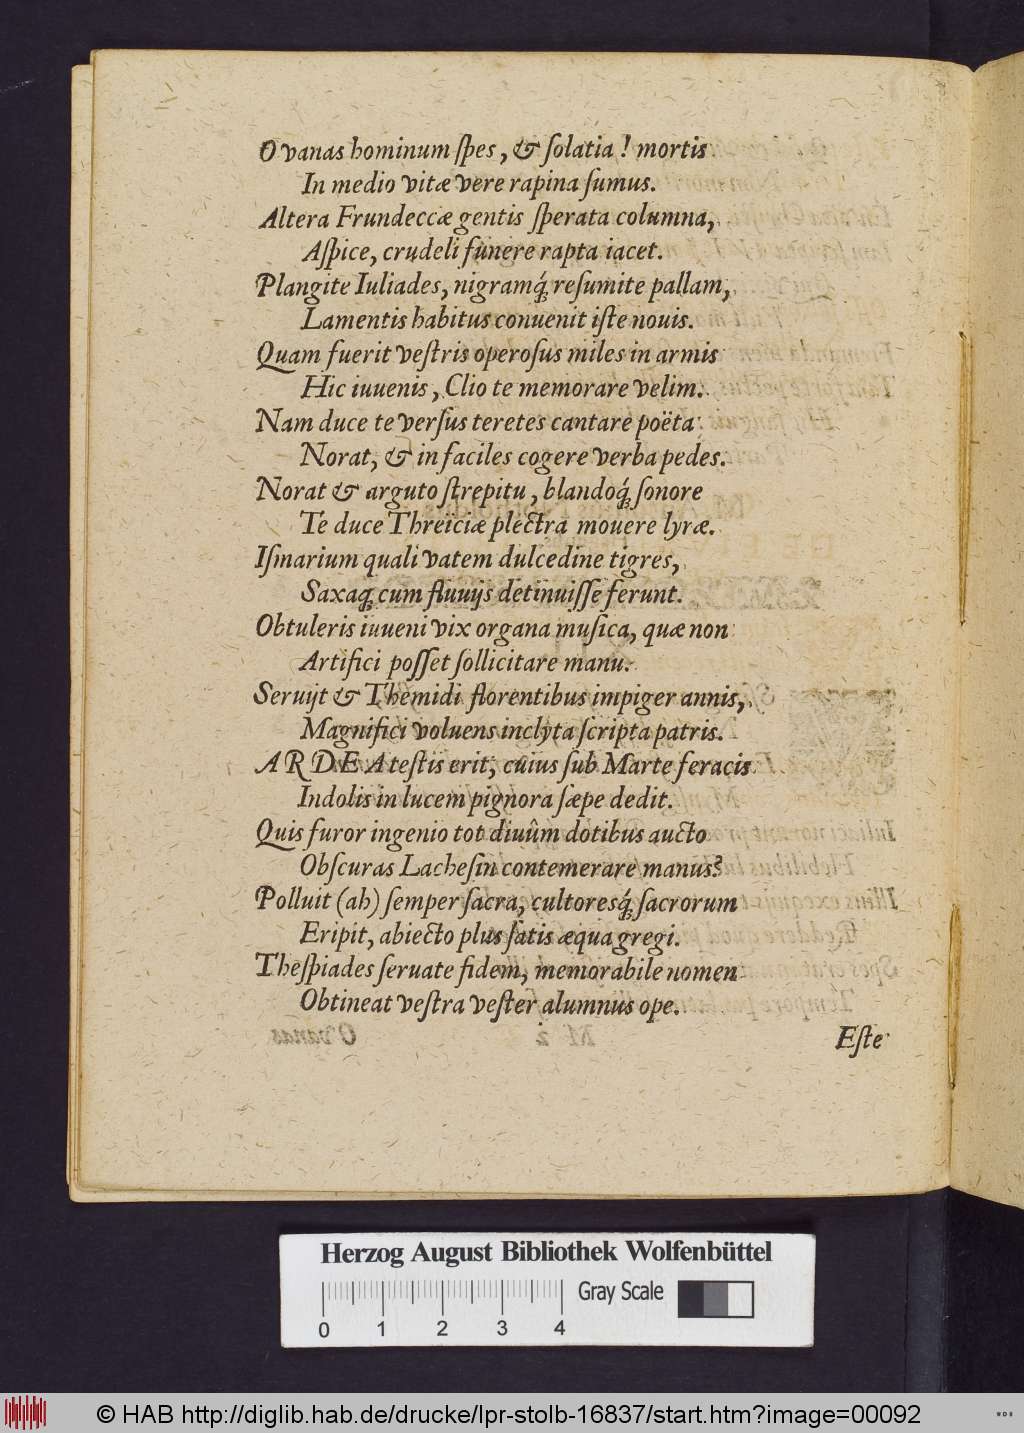 O vanas hominum ſpes, & ſolatia! mortis
In medio vitæ vere rapina ſumus.
Altera Frundeccæ gentis ſperata columna,
Aſpice, crudeli funere rapta iacet.
Plangite Iuliades, nigramq́; reſumite pallam,
Lamentis habitus conuenit iſte nouis.
Quam fuerit veſtris operoſus miles in armis
Hic iuuenis, Clio te memorare velim.
Nam duce te verſus teretes cantare poëta
Norat, & in faciles cogere verba pedes.
Norat & arguto ſtrepitu, blandoq́; ſonore
Te duce Threïciæ plectra mouere lyræ.
Iſmarium quali vatem dulcedine tigres,
Saxaq; cum fluuijs detinuiſſe ferunt.
Obtuleris iuueni vix organa muſica, quæ non
Artifici poſſet ſollicitare manu.
Seruijt & Themidi florentibus impiger annis,
Magnifici voluens inclyta ſcripta patris.
ARDEA teſtis erit, cuius ſub Marte feracis
Indolis in lucem pignora ſæpe dedit.
Quis furor ingenio tot diuûm dotibus aucto
Obſcuras Lacheſin contemerare manus?
Polluit (ah) ſemper ſacra, cultoresq́; ſacrorum
Eripit, abiecto plus ſatis æqua gregi.
Theſpiades ſeruate fidem, memorabile nomen
Obtineat veſtra veſter alumnus ope.
Eſte
Herzog August Bibliothek Wolfenbüttel
Gray Scale
0 1 2 3 4
© HAB http://diglib.hab.de/drucke/lpr-stolb-16837/start.htm?image=00092